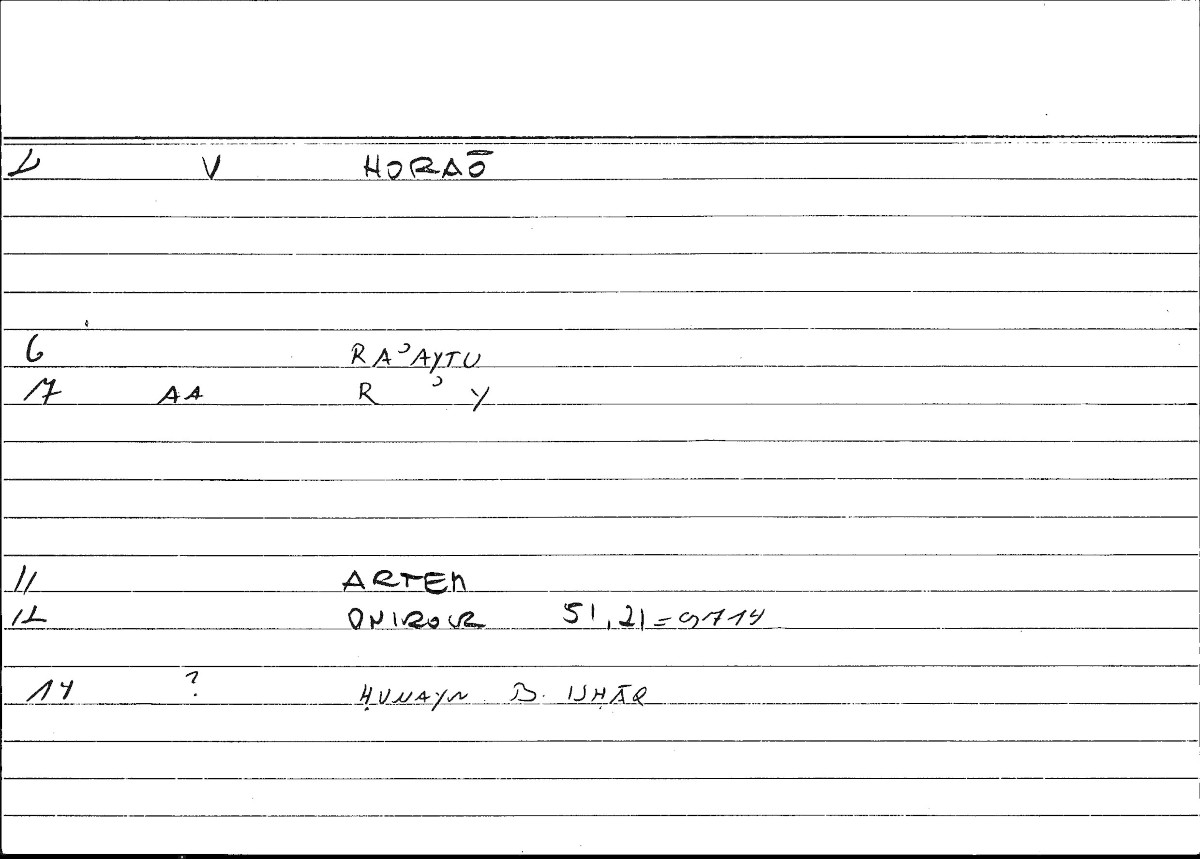 2 V HORAŌ
6 RAʾAYTU
17 AA R ʾ Y
11 ARTEM
12 ONIROCR 51,21=9714
14 ? ḤUNAYN B. ISḤĀQ